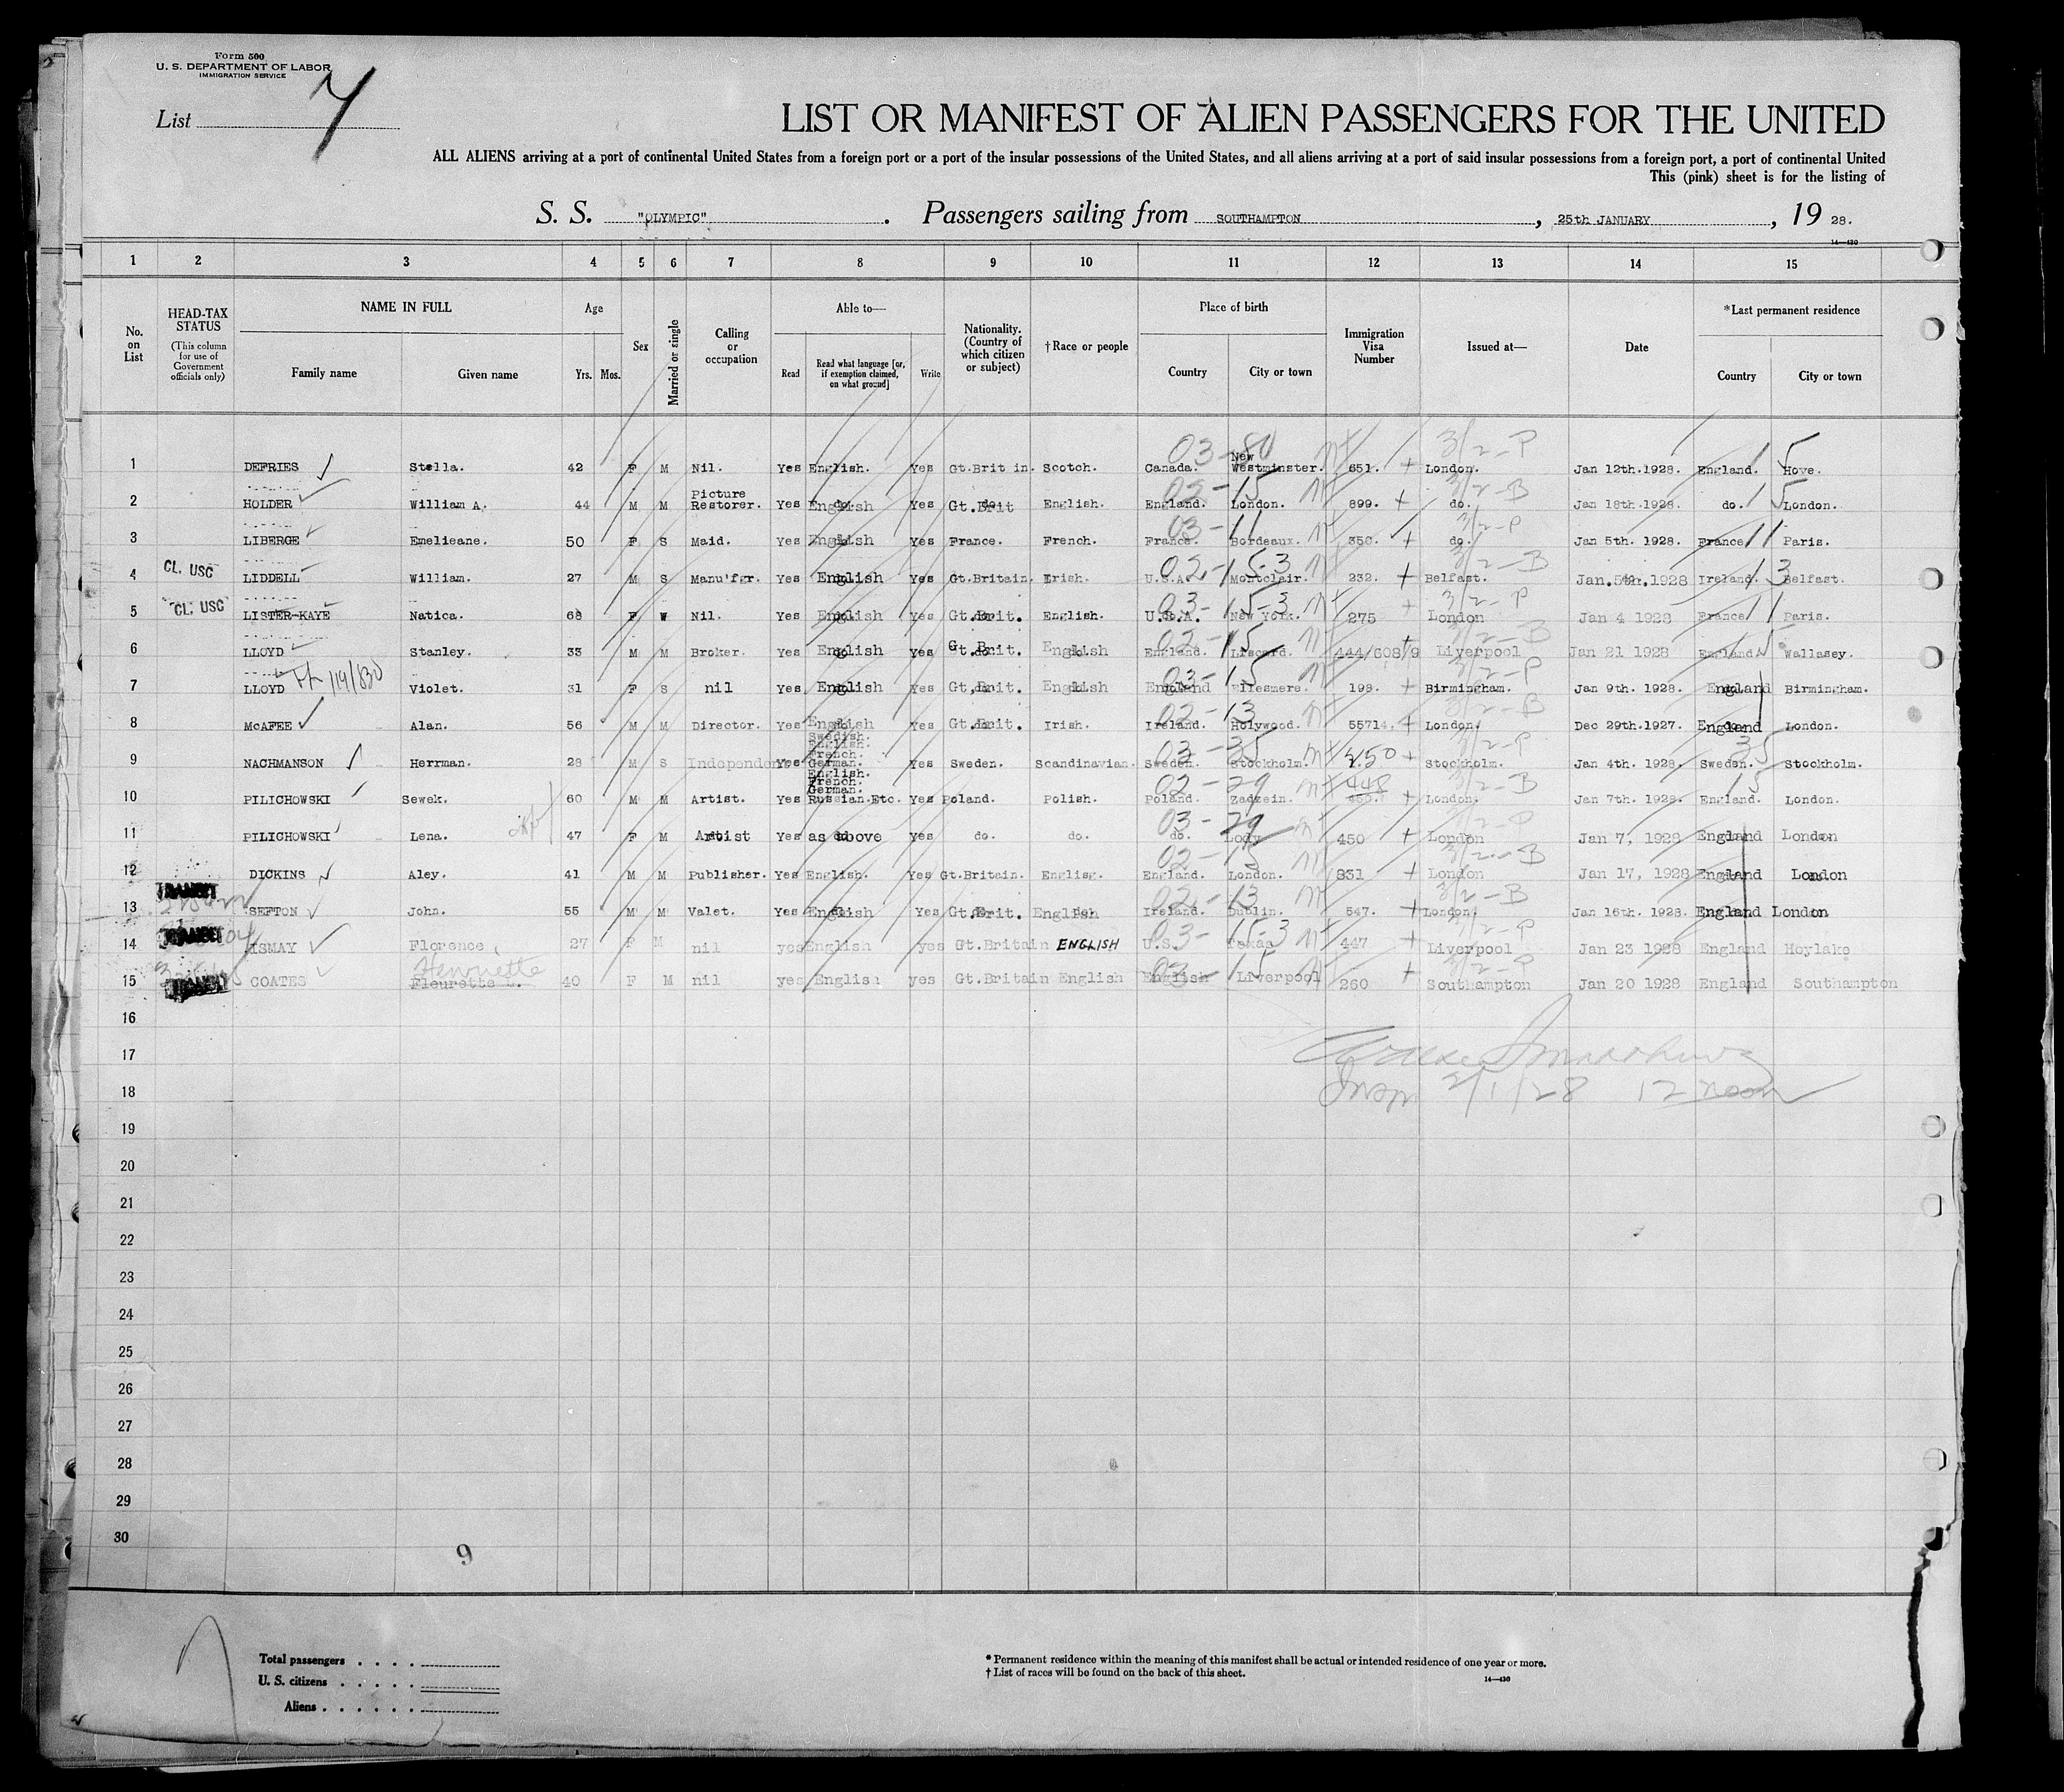 Form 500
U. S. DEPARTMENT OF LABOR
IMMIGRATION SERVICE
List 7
LIST OR MANIFEST OF ALIEN PASSENGERS FOR THE UNITED
ALL ALIENS arriving at a port of continental United States from a foreign port or a port of the insular possessions of the United States, and all aliens arriving at a port of said insular possessions from a foreign port, a port of continental United
This (pink) sheet is for the listing of
S. S. "OLYMPIC". Passengers sailing from SOUTHAMPTON, 25th JANUARY, 19 28.
14—430
1 2 3 4 5 6 7 8 9 10 11 12 13 14 15
No. on List HEAD-TAX STATUS (This column for use of Government officials only) NAME IN FULL Family name Given name Age Yrs. Mos. Sex Married or single Calling or occupation Able to— Read Read what language [or, if exemption claimed, on what ground] Write Nationality. (Country of which citizen or subject) †Race or people Place of birth Country City or town Immigration Visa Number Issued at— Date *Last permanent residence Country City or town
1 DEFRIES Stella. 42 F M Nil. Yes English. Yes Gt.Brit in. Scotch. Canada. New Westminster. 651. London. Jan 12th.1928. England. Hove.
2 HOLDER William A. 44 M M Picture Restorer. Yes English Yes Gt.Brit English. England. London. 899. do. Jan 18th.1928. do. London.
3 LIBERGE Emelieane. 50 F S Maid. Yes English Yes France. French. France. Bordeaux. 350. do. Jan 5th. 1928. France Paris.
4 CL. USC LIDDELL William. 27 M S Manu'fgr. Yes English Yes Gt.Britain. Irish. U.S.A. Montclair. 232. Belfast. Jan.5th.1928 Ireland. Belfast.
5 CL. USC LISTER-KAYE Natica. 68 F W Nil. Yes English Yes Gt.Brit. English. U.S.A. New York. 275 London Jan 4 1928 France Paris.
6 LLOYD Stanley. 33 M M Broker. Yes English Yes Gt.Brit. English England. Liscard. 444/608/9 Liverpool Jan 21 1928 England Wallasey.
7 LLOYD 119/830 Violet. 31 F S nil Yes English Yes Gt.Brit. English England Ellesmere. 198. Birmingham. Jan 9th. 1928. England Birmingham.
8 McAFEE Alan. 56 M M Director. Yes English Yes Gt.Brit. Irish. Ireland. Holywood. 55714. London. Dec 29th.1927. England London.
9 NACHMANSON Herrman. 28 M S Independent Yes Swedish. English. French. German. Yes Sweden. Scandinavian. Sweden. Stockholm. 250 Stockholm. Jan 4th. 1928. Sweden. Stockholm.
10 PILICHOWSKI Sewek. 60 M M Artist. Yes English. French. German. Russian.Etc. Yes Poland. Polish. Poland. Zadzein. 448 London. Jan 7th. 1928. England. London.
11 PILICHOWSKI Lena. 47 F M Artist Yes as above Yes do. do. do. Lody 450 London Jan 7, 1928 England London
12 DICKINS Aley. 41 M M Publisher. Yes English. Yes Gt.Britain. Englisg. England. London. 831 London Jan 17, 1928 England London
13 TRANSIT SEFTON John. 55 M M Valet. Yes English Yes Gt.Brit. English Ireland. Dublin. 547. London. Jan 16th. 1928. England London
14 TRANSIT ISMAY Florence 27 F M nil yes English yes Gt.Britain ENGLISH U.S. Texas 447 Liverpool Jan 23 1928 England Hoylake
15 TRANSIT COATES Henriette Fleurette L. 40 F M nil yes English yes Gt.Britain English English Liverpool 260 Southampton Jan 20 1928 England Southampton
16
17
Insp 2/1/28 12 noon
18
19
20
21
22
23
24
25
26
27
28
29
30
9
Total passengers . . . .
U. S. citizens . . . . .
Aliens . . . . . .
* Permanent residence within the meaning of this manifest shall be actual or intended residence of one year or more.
† List of races will be found on the back of this sheet.
14—430